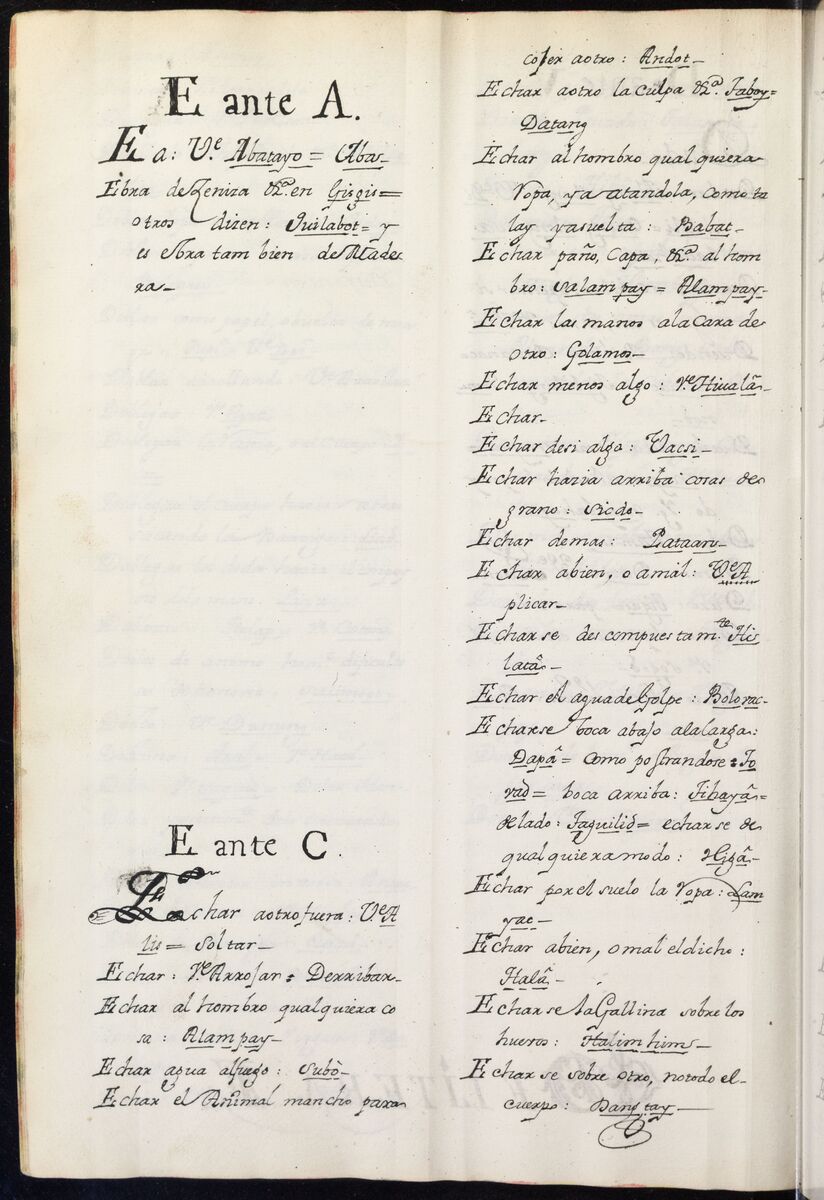 E ante A.
Ea: V.e Abatayo = Abas_
Ebra de Zeniza &.a en Gisgis =
otros dizen: Quilabot = y
es ebra tam bien de Made
ra_
E ante C.
Echar aotro fuera: V.e A
lis = Soltar_
Echar: V.e Arrojar = Derribar_
Echar al hombro qualquiera co
sa: Alampay_
Echar agua alfuego: Subò_
Echar el Animal mancho para
cojer aotro: Andot_
Echar aotro la culpa &.a Taboy =
Datang
Echar al hombro qual quiera
ropa, ya atandola, como ta
lay yasuelta: Babat_
Echar paño, Capa, &.a al hom
bro: Salampay = Alampay_
Echar las manos ala Cara de
otro: Golamos_
Echar menos algo: V.e Hiualâ_
Echar_
Echar desi algo: Vacsi_
Echar hazia arriba cosas de
grano: Sicdo_
Echar demas: Pataan_
Echar abien, o amal: V.e A
plicar_
Echarse des compuestam.te His
latâ_
Echar el agua de Golpe: Bolovac_
Echarse boca abajo alalarga:
Dapâ = Como postrandose: To
vad = boca arriba: Tihayâ =
de lado: Taguilid = echar se de
qual quiera modo: Higâ_
Echar por el suelo la ropa: Lam
yac_
Echar abien, omal eldicho:
Halâ_
Echarse la Gallina sobre los
huevos: Halimhim_
Echar se sobre otro, notodo el
cuerpo: Dangtay_